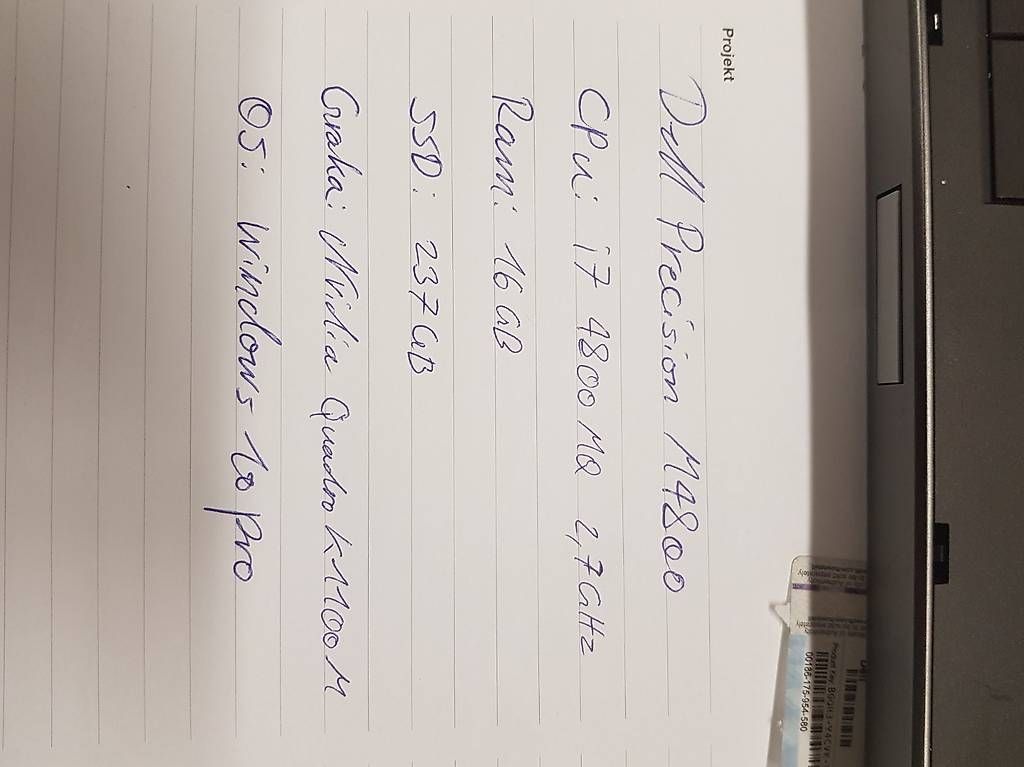 Projekt
Dell Precision M4800
CPU: i7 4800MQ 2,7GHz
Ram: 16GB
SSD: 237GB
Graka: NVidia Quadro K1100M
OS: Windows 10 Pro
Product Key:
00186-175-954-580